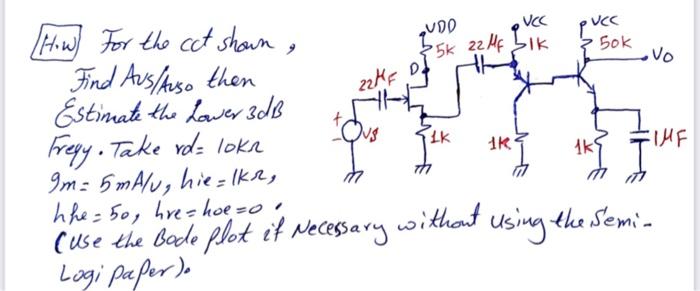 [H.w] For the cct shown ,
Find Avs/Avso then
Estimate the Lower 3dB
Freqy. Take rd= 10kΩ
gm= 5mA/v, hie=1kΩ,
hfe=50, hre=hoe=0.
(use the Bode plot if Necessary without using the Semi-
Logi paper).
VDD
5k
D
22MF
+
-
Vs
1k
22MF
VCC
1k
1k
VCC
50k
Vo
1k
1MF